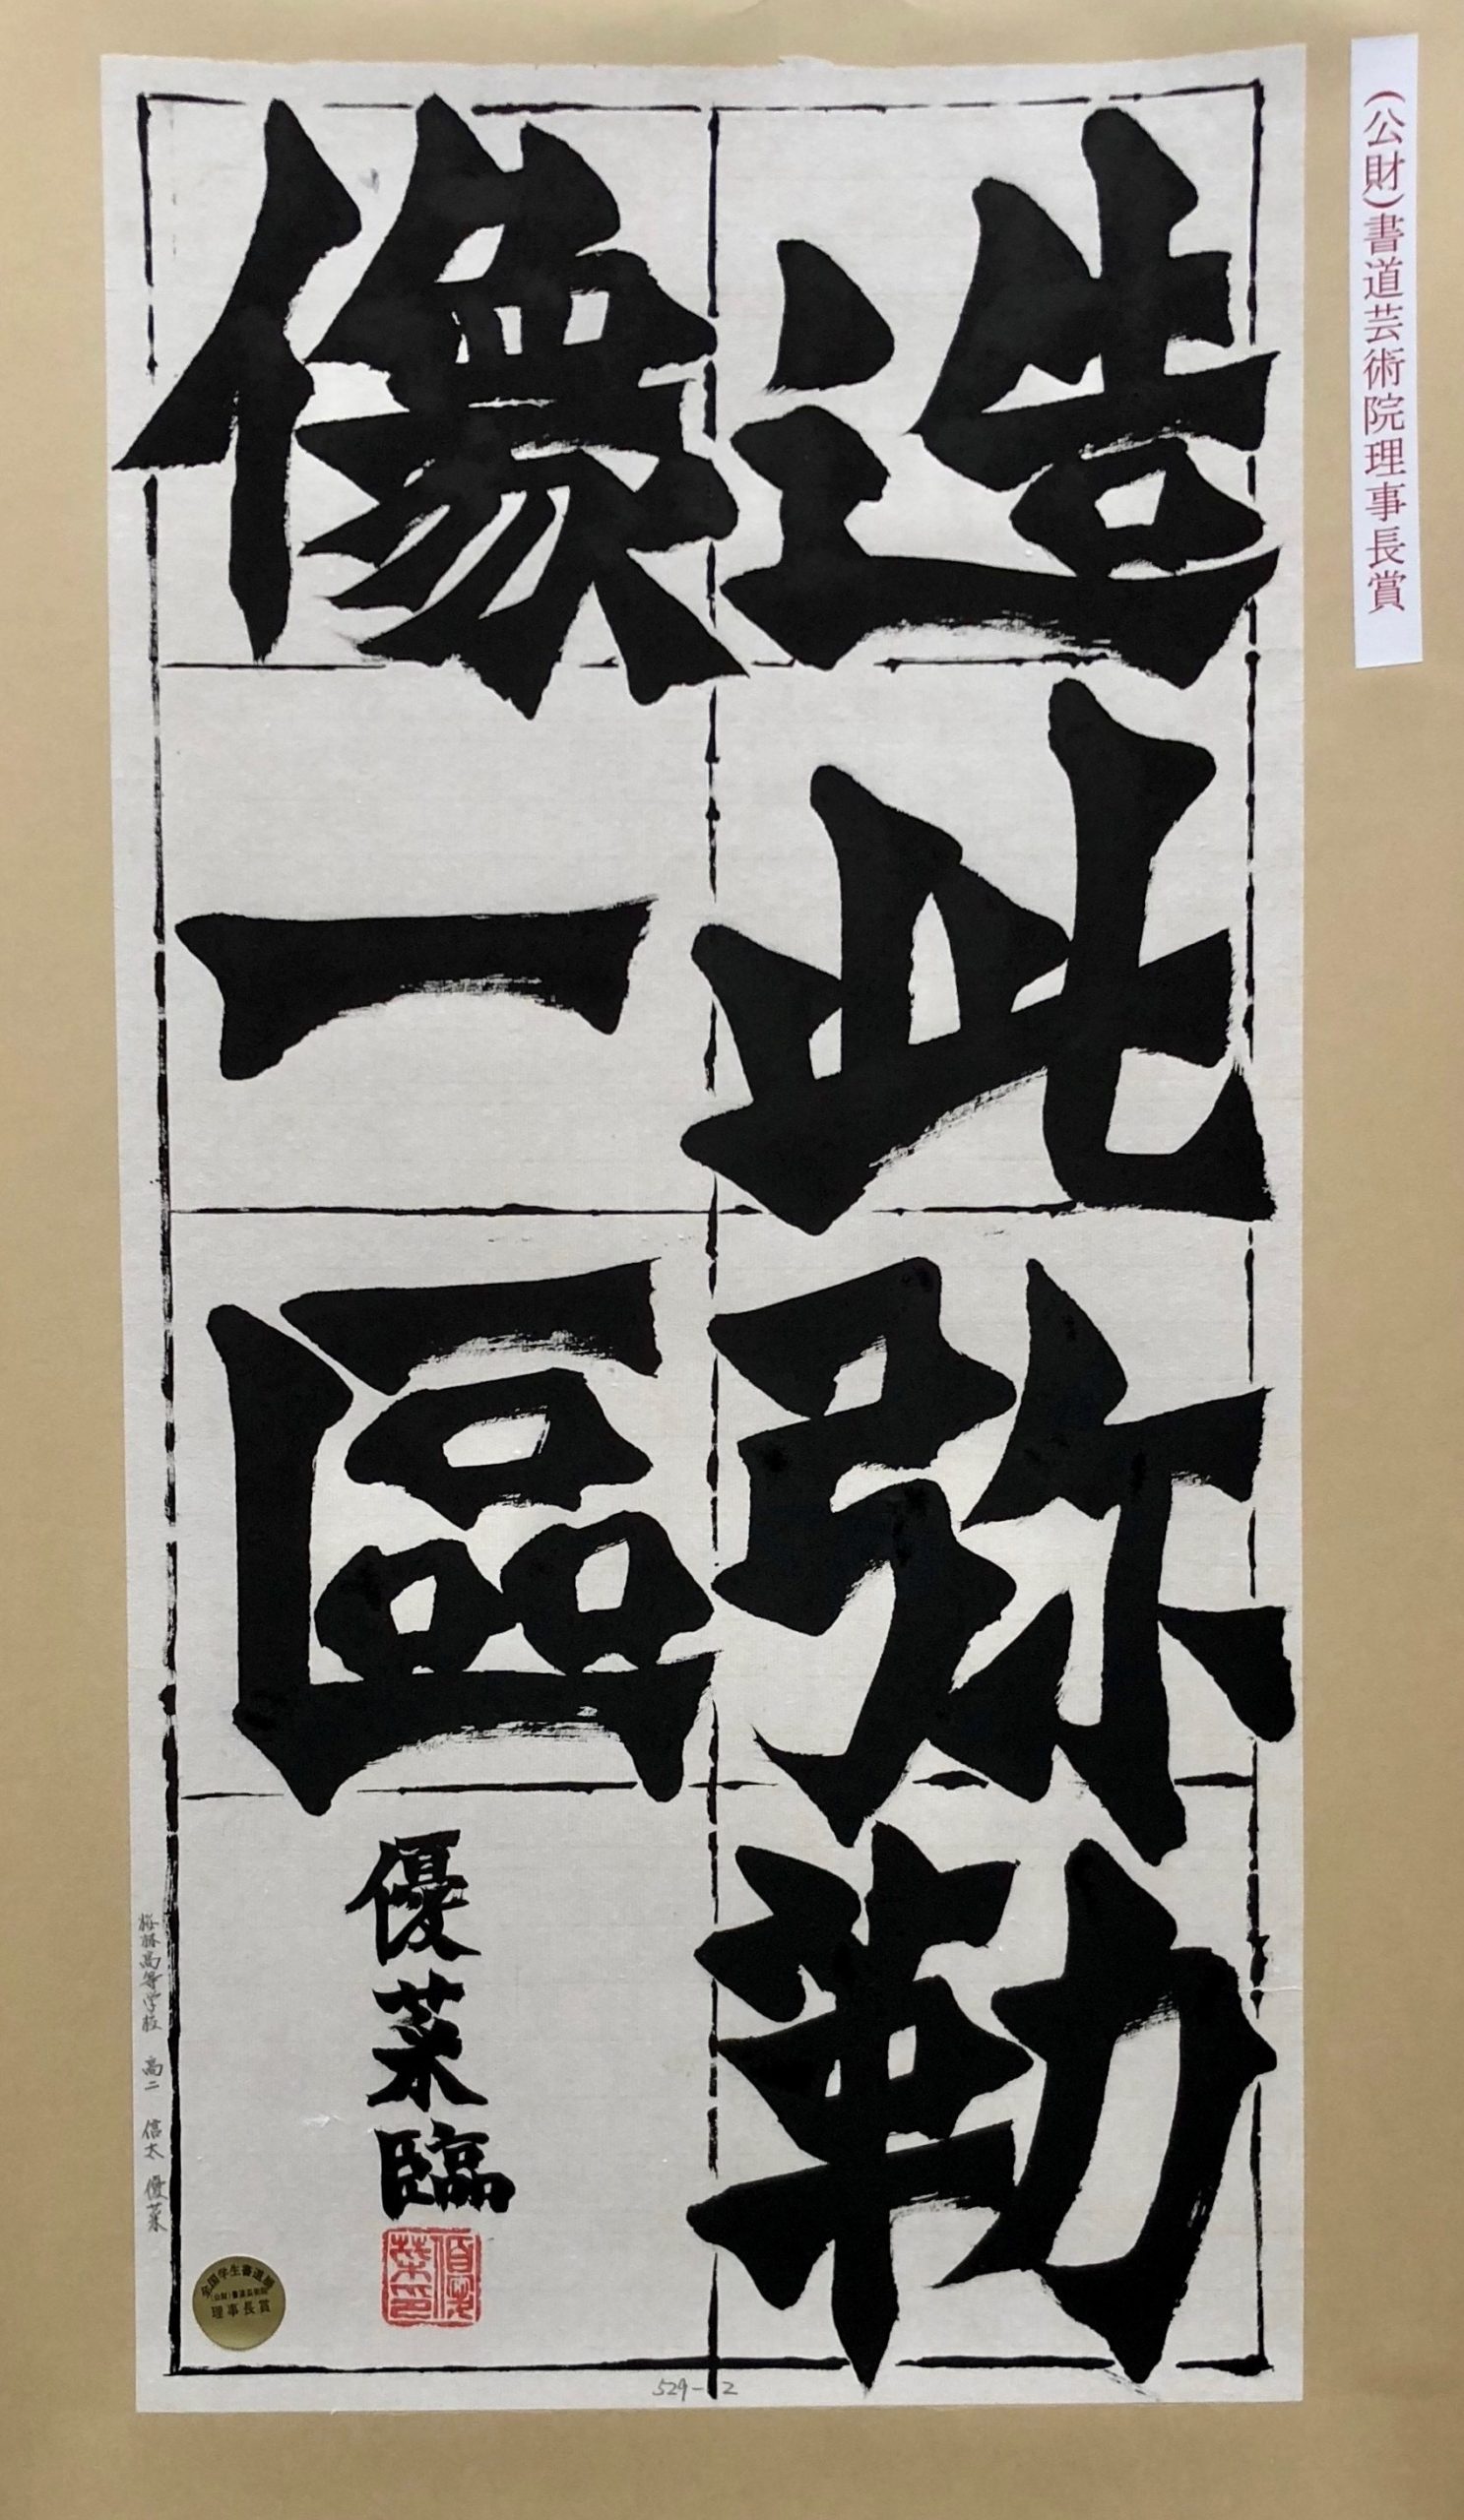 (公財)書道芸術院理事長賞
造此弥勒
像一區
優菜臨
高等学校 高二 信太 優菜
全国学生書道展
(公財)書道芸術院
理事長賞
529-12